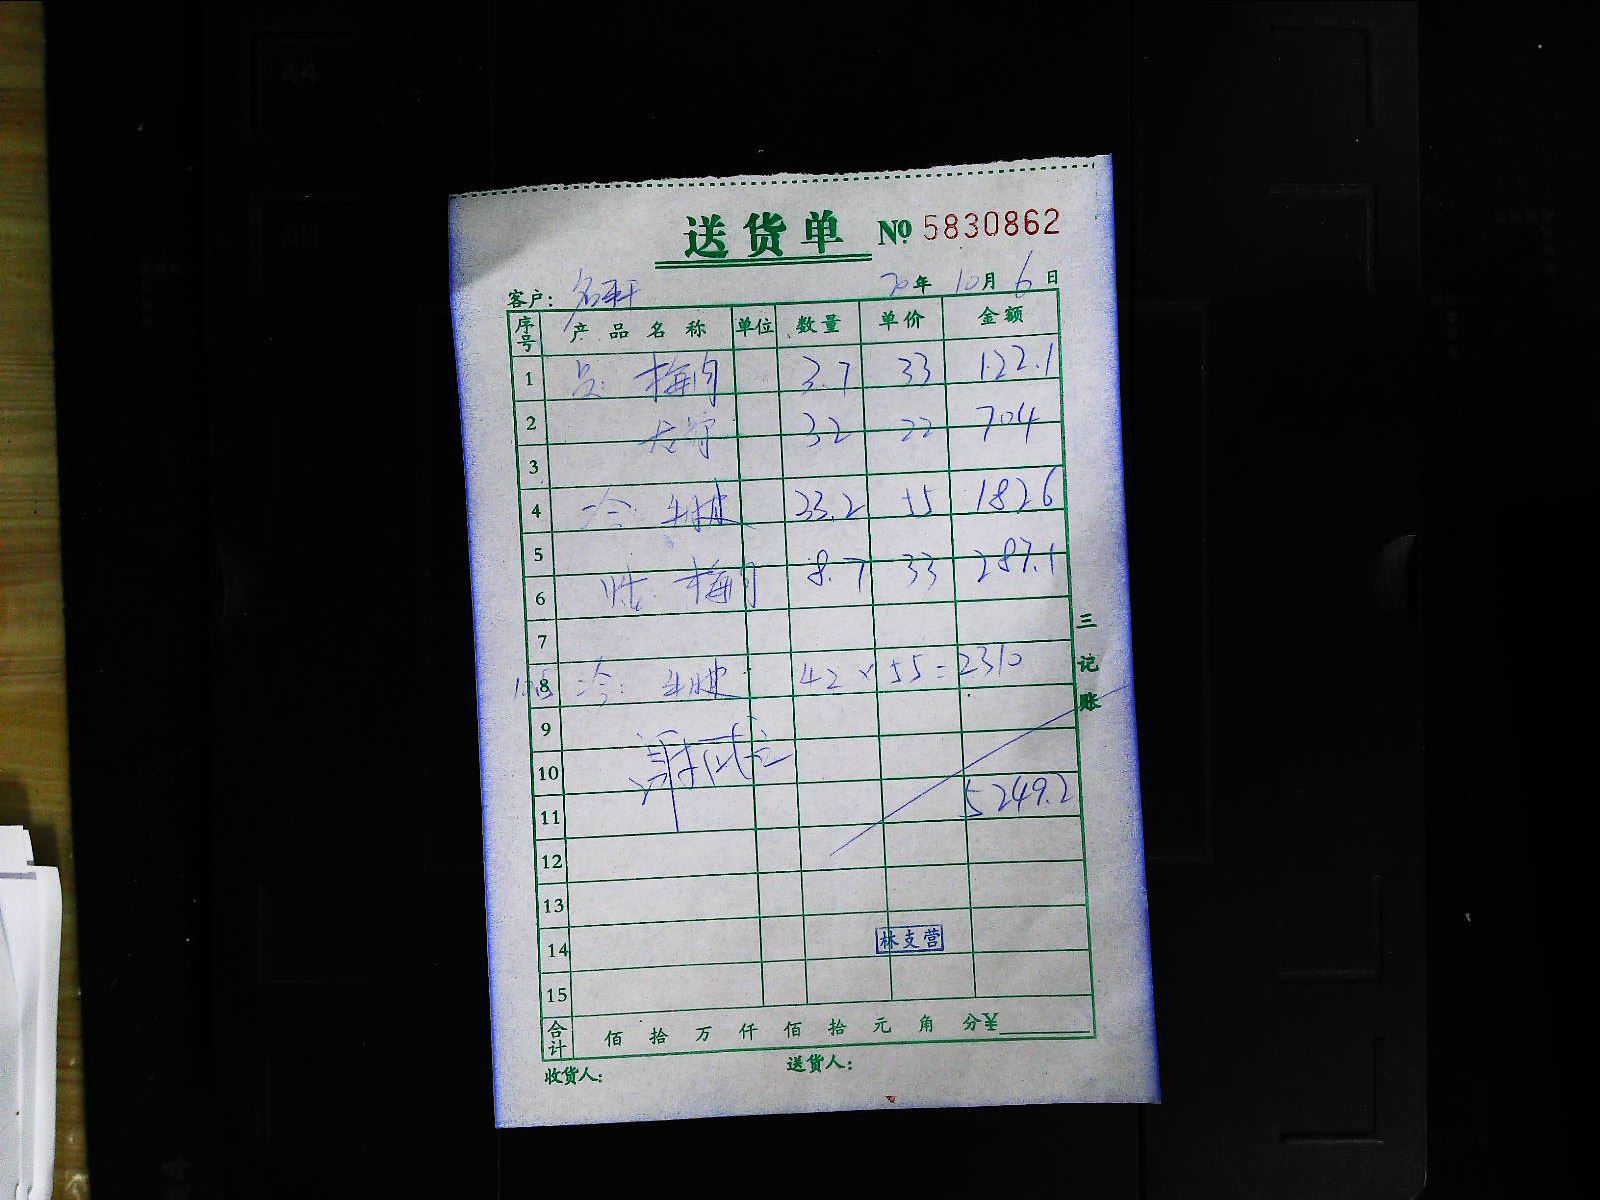 送货单 № 5830862
客户： 名轩 20年 10月 6日
序号 产品名称 单位 数量 单价 金额
1 梅肉 3.7 33 122.1
2 32 22 704
3
4 冷: 牛腱 33.2 55 1826
5
6 梅肉 8.7 33 287.1
7
8 冷: 牛腱 42 × 55 = 2310
9
10
11 5249.2
12
13
14 林支营
15
合计 佰 拾 万 仟 佰 拾 元 角 分 ¥
收货人： 送货人：
三记账
A4
A5